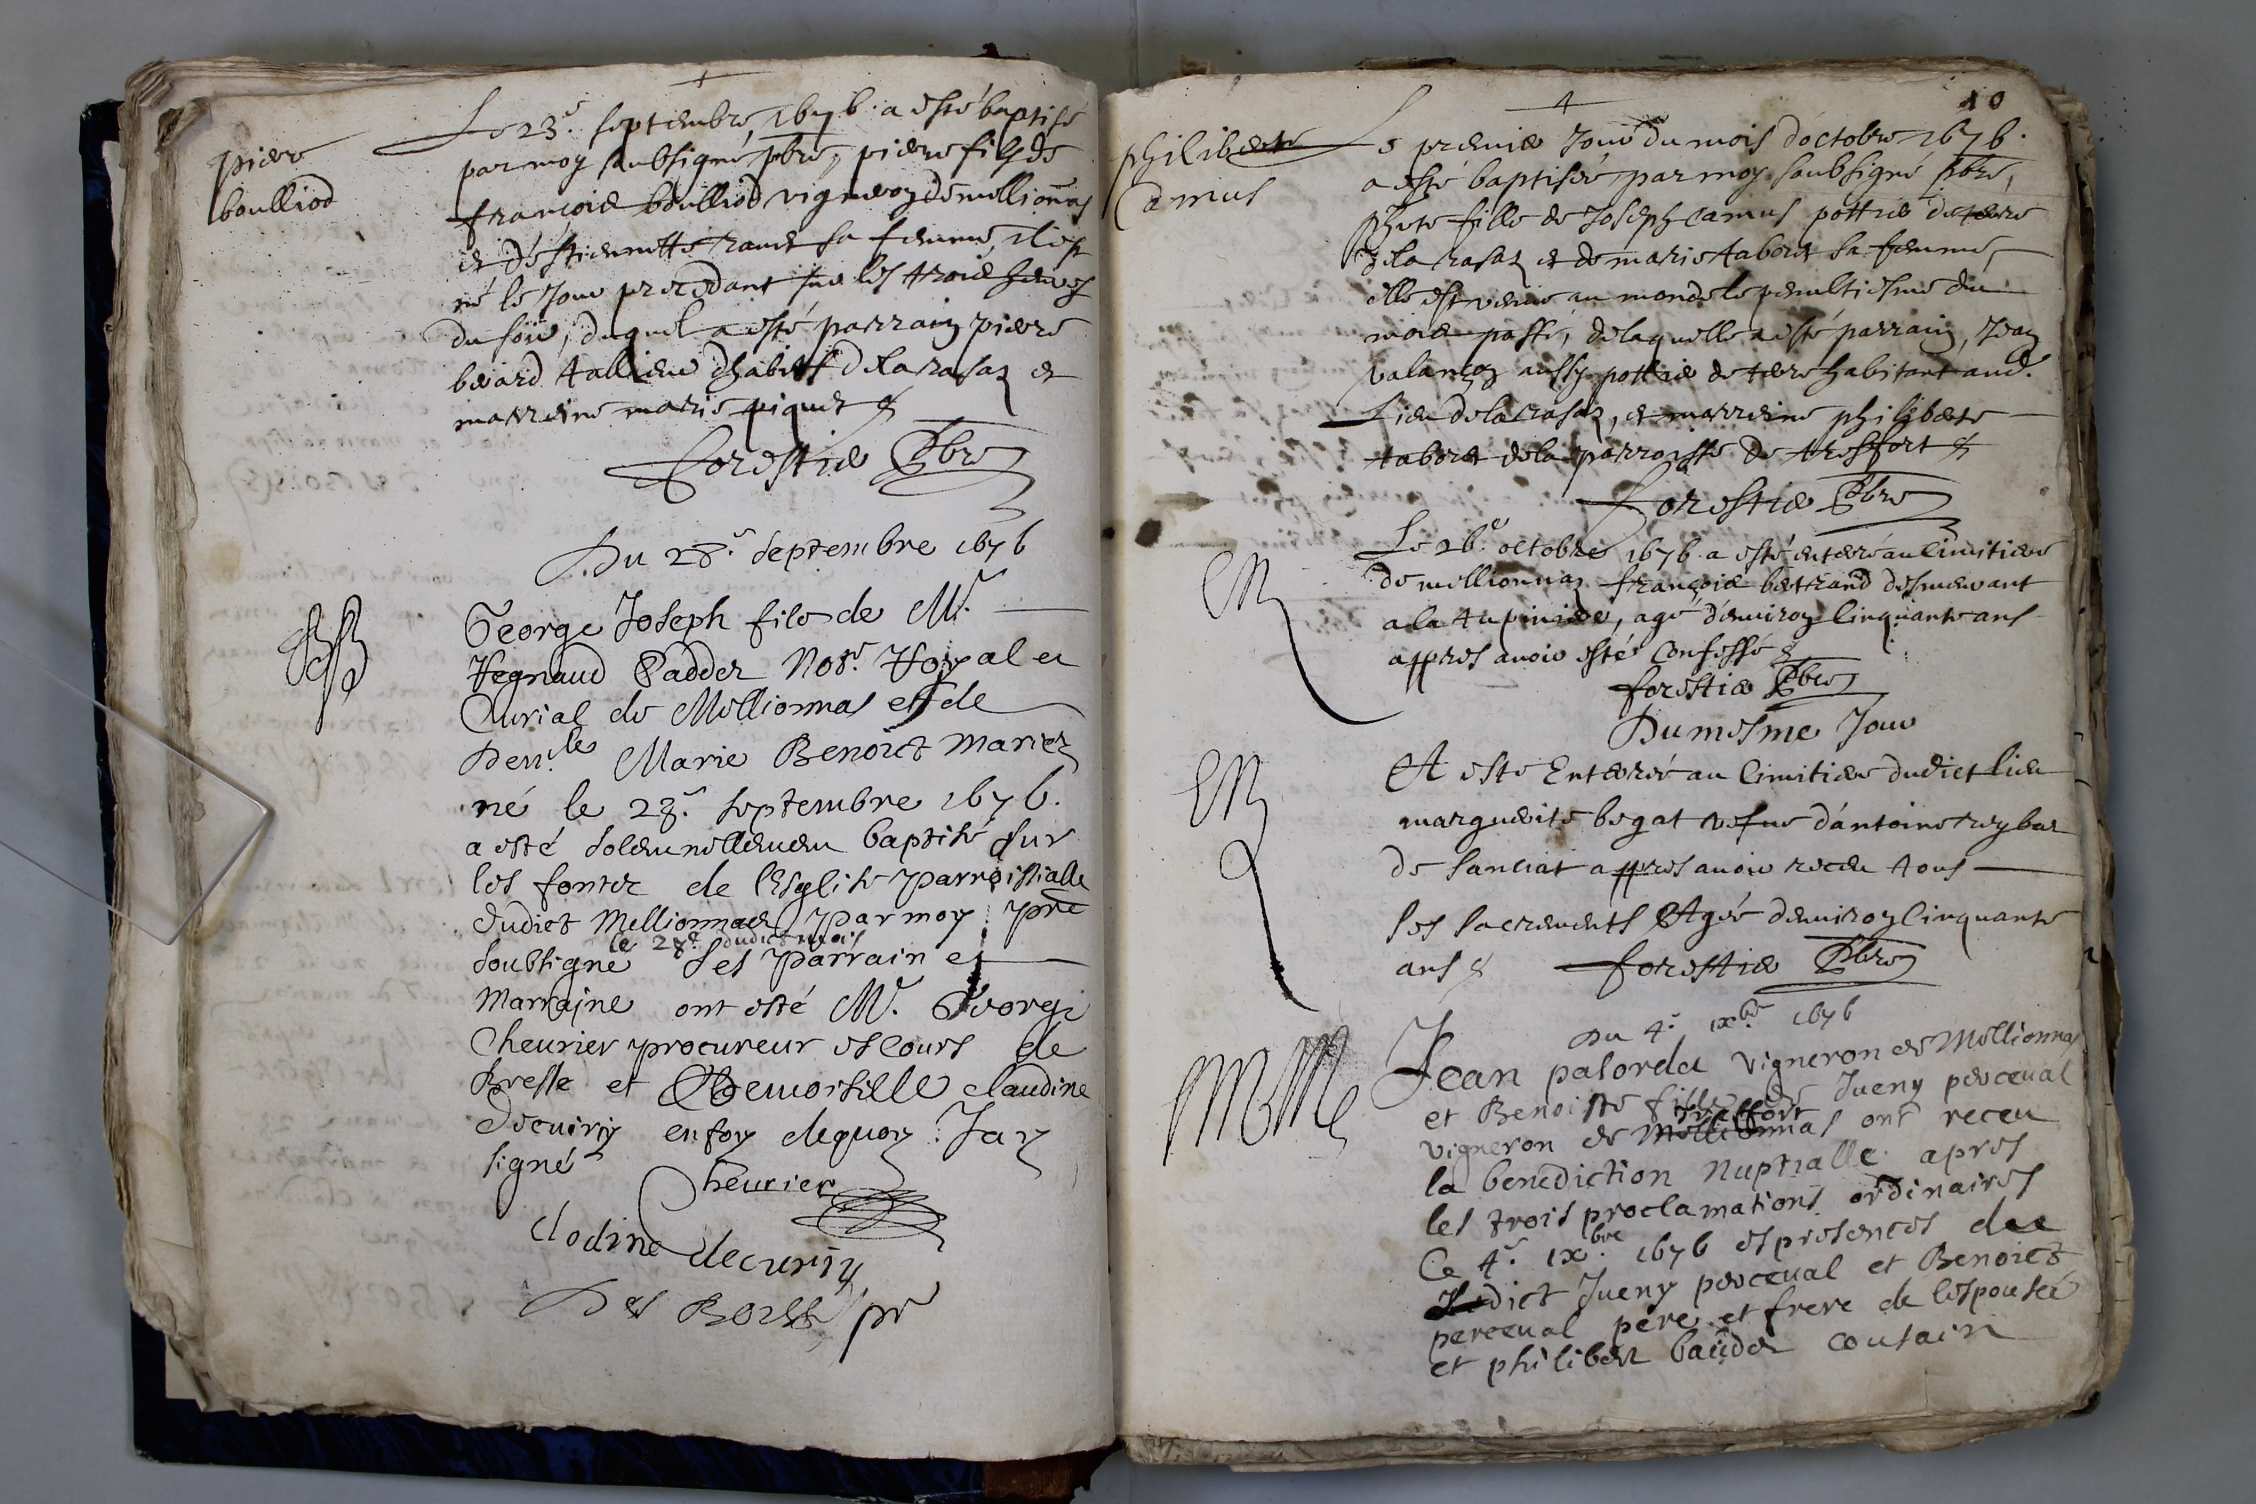 Pierre
boulliod
Le 23.e septembre 1676 a esté baptisé
par moy soubsigné pbre, pierre fils de
françois boulliod vigneron de mellionas
et d'estiennette sa femme, il est
né le jour precedant sur les trois heures
du soir, duquel a esté parrain pierre
tallieur d'habits de la rasaz et
marreine marie piquet
forestier Pbre
Du 28.e septembre 1676
George Joseph fils de M.r
Regnaud Not.re Royal et
Curial de Mellionnas et de
Dem.lle Marie Benoict mariez
né le 23.e septembre 1676.
a esté solemnellemen baptisé sur
les fontz de lEsglise parroissialle
dudict Mellionnaz par moy pre
le 28.e dudict mois
soubsigné Les parrain et
Marrajne ont esté M.r George
Cheurier procureur es cours de
Bresse et Demoiselle claudine
decuiriy en foy de quoy Jay
signé
Cheurier
clodine decuriy
pr
10
philiberte
Camus
Le premier Jour du mois d'octobre 1676.
a esté baptisée par moy soubsigné Pbre,
phte fille de Joseph Camus pottier de terre
de la rasaz et de marie taboret sa femme,
elle est venue au monde le penultiesme du
mois passé, de laquelle a esté parrain, Jean
valançon aussy pottier de terre habitant aud.
Lieu de la rasaz, et marreine philiberte
taboret de la parroisse de treffort
forestier Pbre
Le 26.e octobre 1676 a esté enterré au Cimitiere
de mellionnaz françois bertrand desmeurant
a la tupiniere, agé d'enuiron cinquante ans
appres auoir esté Confessé
forestier Pbre
Du mesme Jour
A esté Enterrée au Cimitiere dudict lieu
marguerite begat vefue d'antoine reybaz
de sanciat appres auoir receu tous
les sacrements Agée denuiron Cinquante
ans forestier Pbre
Du 4.e ixbre 1676
Jean palorda vigneron de Mellionnas
et Benoiste fille de Jueny perceual
treffort
vigneron de Mellionnas ont receu
la benediction Nuptialle apres
les trois proclamations ordinaires
Ce 4.e ixbre 1676 es presences du
dict Jueny perceual et Benoict
perceual pere et frere de lespousée
et philibert baudet cousain